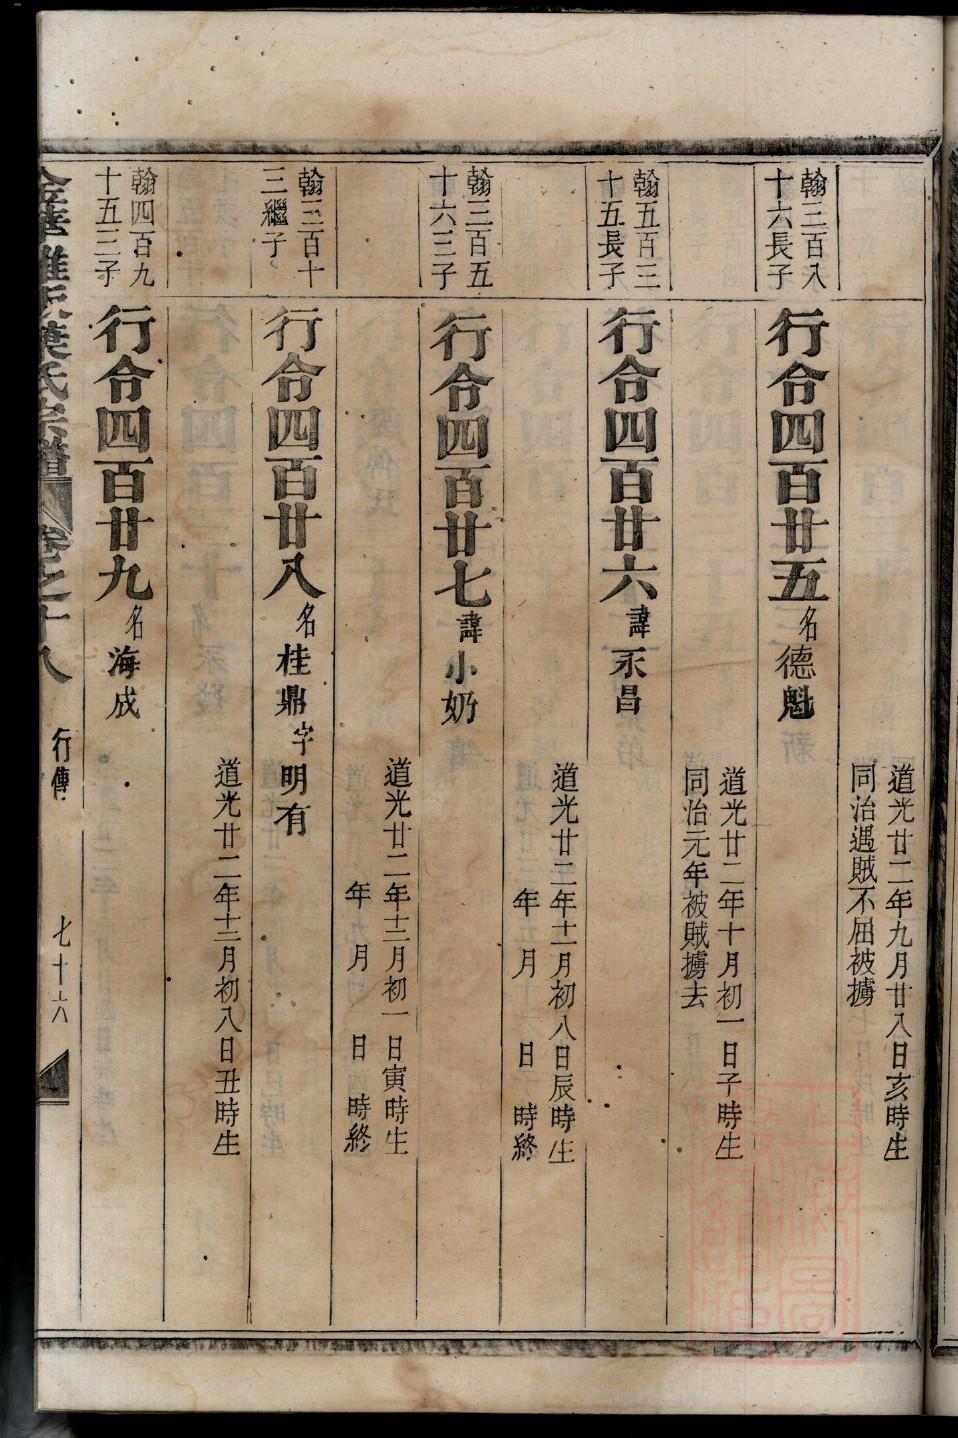 翰三百八
十六長子
行令四百廿五名德魁
道光廿二年九月廿八日亥時生
同治遇賊不屈被擄
翰五百三
十五長子
行令四百廿六諱永昌
道光廿二年十月初一日子時生
同治元年被賊擄去
翰三百五
十六三子
行令四百廿七諱小奶
道光廿二年十二月初八日辰時生
年 月 日 時終
翰三百十
三繼子
行令四百廿八名桂鼎字明有
道光廿二年十二月初一日寅時生
年 月 日 時終
翰四百九
十五三子
行令四百廿九名海成
道光廿二年十二月初八日丑時生
葉氏宗譜 卷之十八 行傳 七十六